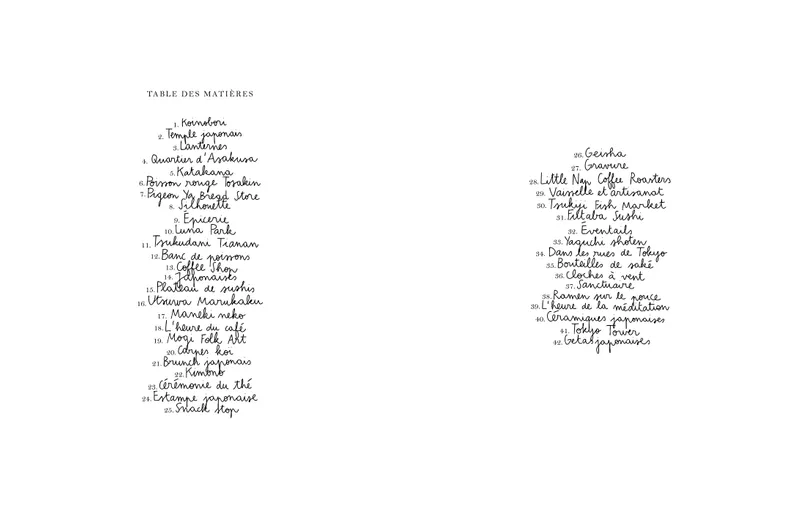 TABLE DES MATIÈRES
1. Koinobori
2. Temple japonais
3. Lanternes
4. Quartier d'Asakusa
5. Katakana
6. Poisson rouge Tosakin
7. Pigeon Ya Bread Store
8. Silhouette
9. Épicerie
10. Luna Park
11. Tsukudani Tianan
12. Banc de poissons
13. Coffee Shop
14. Japonaises
15. Plateau de sushis
16. Utsuwa Marukaku
17. Maneki neko
18. L'heure du café
19. Mogi Folk Art
20. Carpes koi
21. Brunch japonais
22. Kimono
23. Cérémonie du thé
24. Estampe japonaise
25. Snack stop
26. Geisha
27. Gravure
28. Little Nap Coffee Roasters
29. Vaisselle et artisanat
30. Tsukiji Fish Market
31. Futaba Sushi
32. Éventails
33. Yaguchi shoten
34. Dans les rues de Tokyo
35. Bouteilles de saké
36. Cloches à vent
37. Sanctuaire
38. Ramen sur le pouce
39. L'heure de la méditation
40. Céramiques japonaises
41. Tokyo Tower
42. Getas japonaises